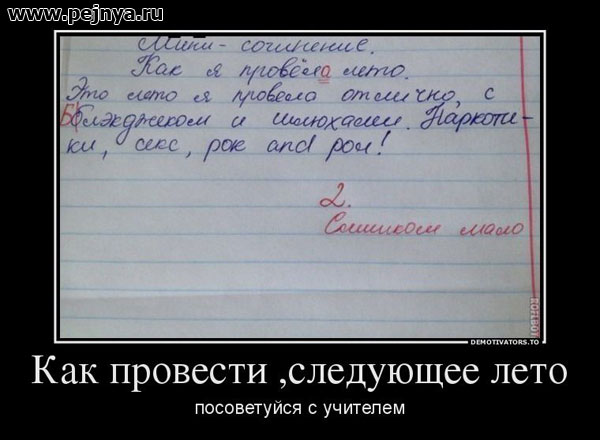 www.pejnya.ru
Мини - сочинение.
Как я провёла лето.
Это лето я провела отлично, с
Блэкджеком и шлюхами. Наркоти-
ки, секс, рок and рол!
2.
Слишком мало
DEMOTIVATORS.TO
Как провести ,следующее лето
посоветуйся с учителем